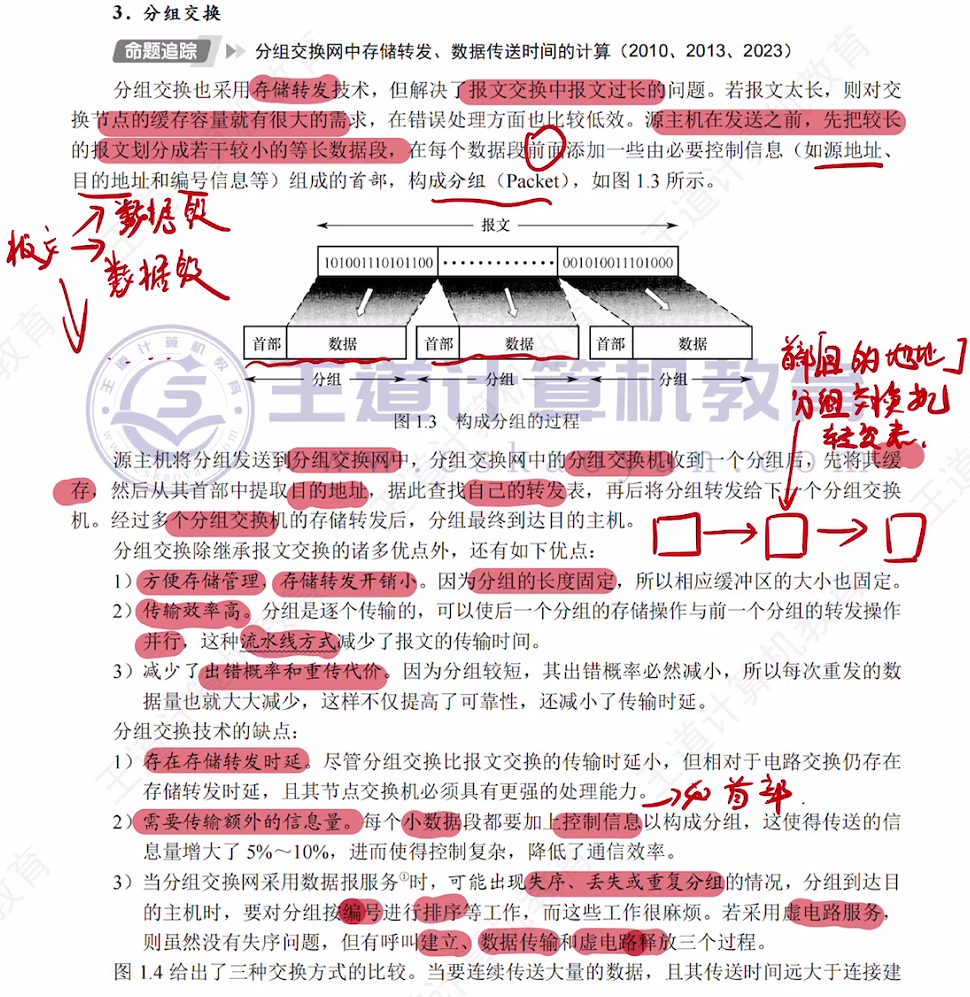 3．分组交换
命题追踪 分组交换网中存储转发、数据传送时间的计算（2010、2013、2023）
分组交换也采用存储转发技术，但解决了报文交换中报文过长的问题。若报文太长，则对交
换节点的缓存容量就有很大的需求，在错误处理方面也比较低效。源主机在发送之前，先把较长
的报文划分成若干较小的等长数据段，在每个数据段前面添加一些由必要控制信息（如源地址、
目的地址和编号信息等）组成的首部，构成分组（Packet），如图 1.3 所示。
数据段
报文
数据段
报文
101001110101100 ·············· 001010011101000
首部 数据 首部 数据 首部 数据
分组 分组 分组
首部[目的地址]
分组交换机
转发表.
图 1.3 构成分组的过程
王道计算机教育
源主机将分组发送到分组交换网中，分组交换网中的分组交换机收到一个分组后，先将其缓
存，然后从其首部中提取目的地址，据此查找自己的转发表，再后将分组转发给下一个分组交换
机。经过多个分组交换机的存储转发后，分组最终到达目的主机。
分组交换除继承报文交换的诸多优点外，还有如下优点：
1）方便存储管理，存储转发开销小。因为分组的长度固定，所以相应缓冲区的大小也固定。
2）传输效率高。分组是逐个传输的，可以使后一个分组的存储操作与前一个分组的转发操作
并行，这种流水线方式减少了报文的传输时间。
3）减少了出错概率和重传代价。因为分组较短，其出错概率必然减小，所以每次重发的数
据量也就大大减少，这样不仅提高了可靠性，还减小了传输时延。
分组交换技术的缺点：
1）存在存储转发时延。尽管分组交换比报文交换的传输时延小，但相对于电路交换仍存在
存储转发时延，且其节点交换机必须具有更强的处理能力。
首部.
2）需要传输额外的信息量。每个小数据段都要加上控制信息以构成分组，这使得传送的信
息量增大了 5%～10%，进而使得控制复杂，降低了通信效率。
3）当分组交换网采用数据报服务①时，可能出现失序、丢失或重复分组的情况，分组到达目
的主机时，要对分组按编号进行排序等工作，而这些工作很麻烦。若采用虚电路服务，
则虽然没有失序问题，但有呼叫建立、数据传输和虚电路释放三个过程。
图 1.4 给出了三种交换方式的比较。当要连续传送大量的数据，且其传送时间远大于连接建